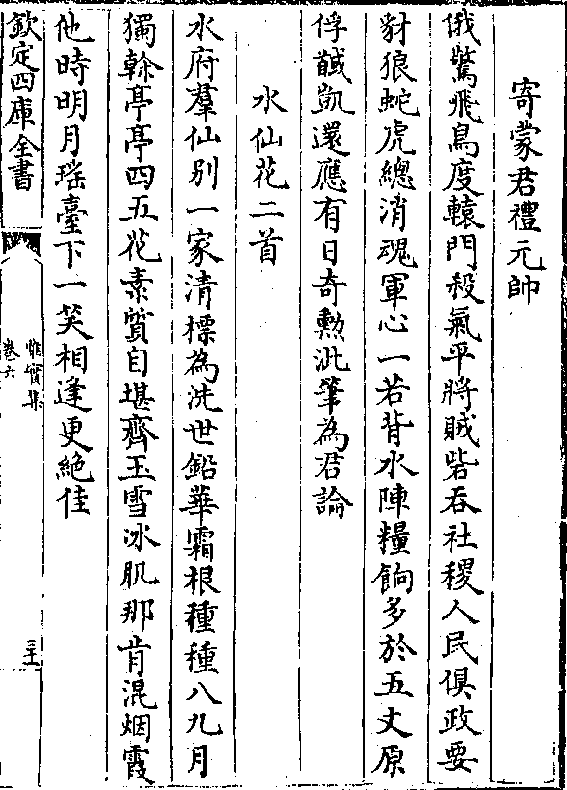 寄蒙君禮元帥
俄驚飛鳥度轅門殺氣平將賊砦吞社稷人民俱政要
豺狼蛇虎總消魂軍心一若背水陣糧餉多於五丈原
俘馘凱還應有日奇勲泚筆為君論
水仙花二首
水府羣仙别一家清標為洗世鉛華霜根種種八九月
獨榦亭亭四五花素質自堪齊玉雪冰肌那肯混烟霞
他時明月瑶臺下一笑相逢更絶佳
欽定四庫全書
惟實集
卷六